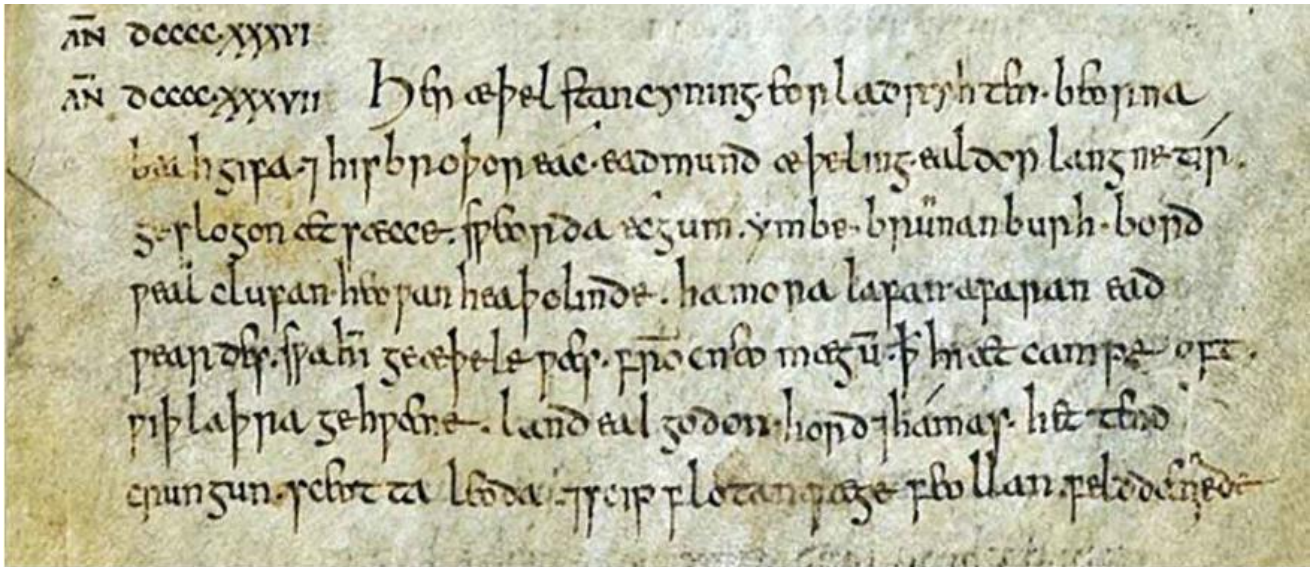 AN̄ DCCCC.XXXVI
AN̄ DCCCC.XXXVII Her æþelstan cyning. eorla dryhten. beorna
beahgifa. ⁊ his broþor eac. eadmund æþeling. ealdor langne tír.
geslogon æt sæcce. sƿeorda ecgum. ymbe. brunnanburh. bord
ƿeal clufan. heoƿan heaþolinde. hamora lafan. afaran ead
ƿeardes. sƿa hī geæþele ƿæs. frō cneo mægū. ꝥ hi æt campe oft.
ƿiþ laþra gehƿæne. land ealgodon. hord ⁊ hámas. hettend
crungun. sceotta leoda. ⁊ scip flotan fæge feollan.